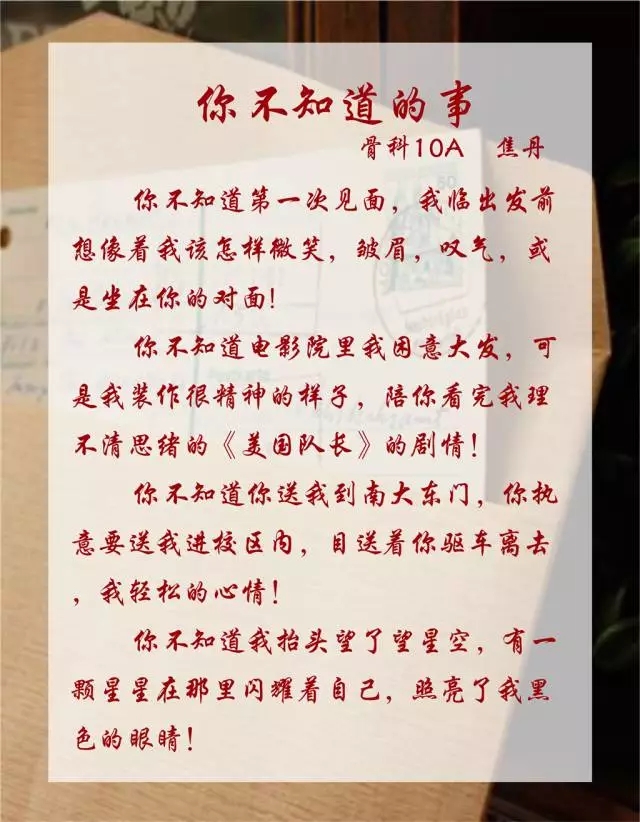 你不知道的事
骨科10A 焦丹
你不知道第一次见面，我临出发前
想像着我该怎样微笑，皱眉，叹气，或
是坐在你的对面！
你不知道电影院里我困意大发，可
是我装作很精神的样子，陪你看完我理
不清思绪的《美国队长》的剧情！
你不知道你送我到南大东门，你执
意要送我进校区内，目送着你驱车离去
，我轻松的心情！
你不知道我抬头望了望星空，有一
颗星星在那里闪耀着自己，照亮了我黑
色的眼睛！